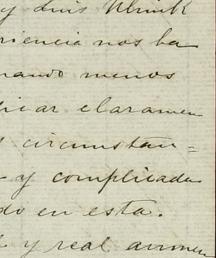 y Luis Ulrick
riencia nos ha
uando menos
dicar claramen
circunstan=
y complicada
do en esta.
y real armon